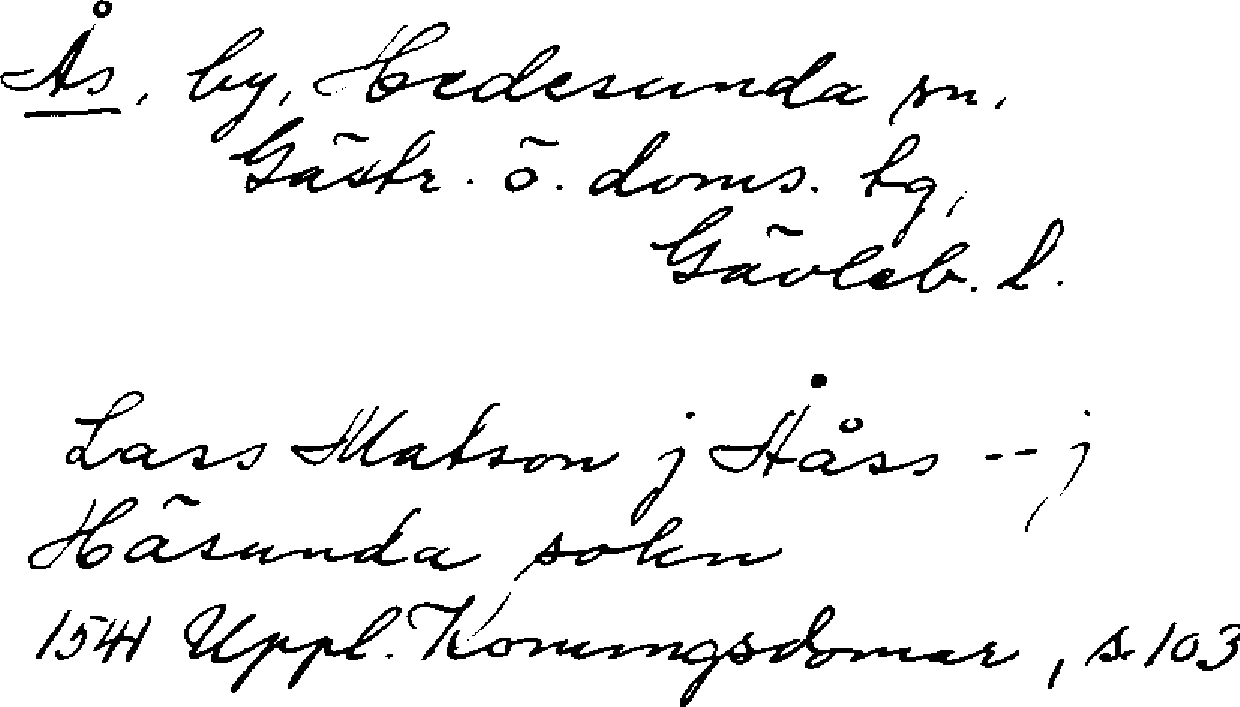 Ås, by, Hedesunda sn.
Gästr. ö. doms. tg,
Gävleb. l.
Lass Matson j Håss -- j
Häsunda sokn
1541 Uppl. Konungsdomar, s. 103